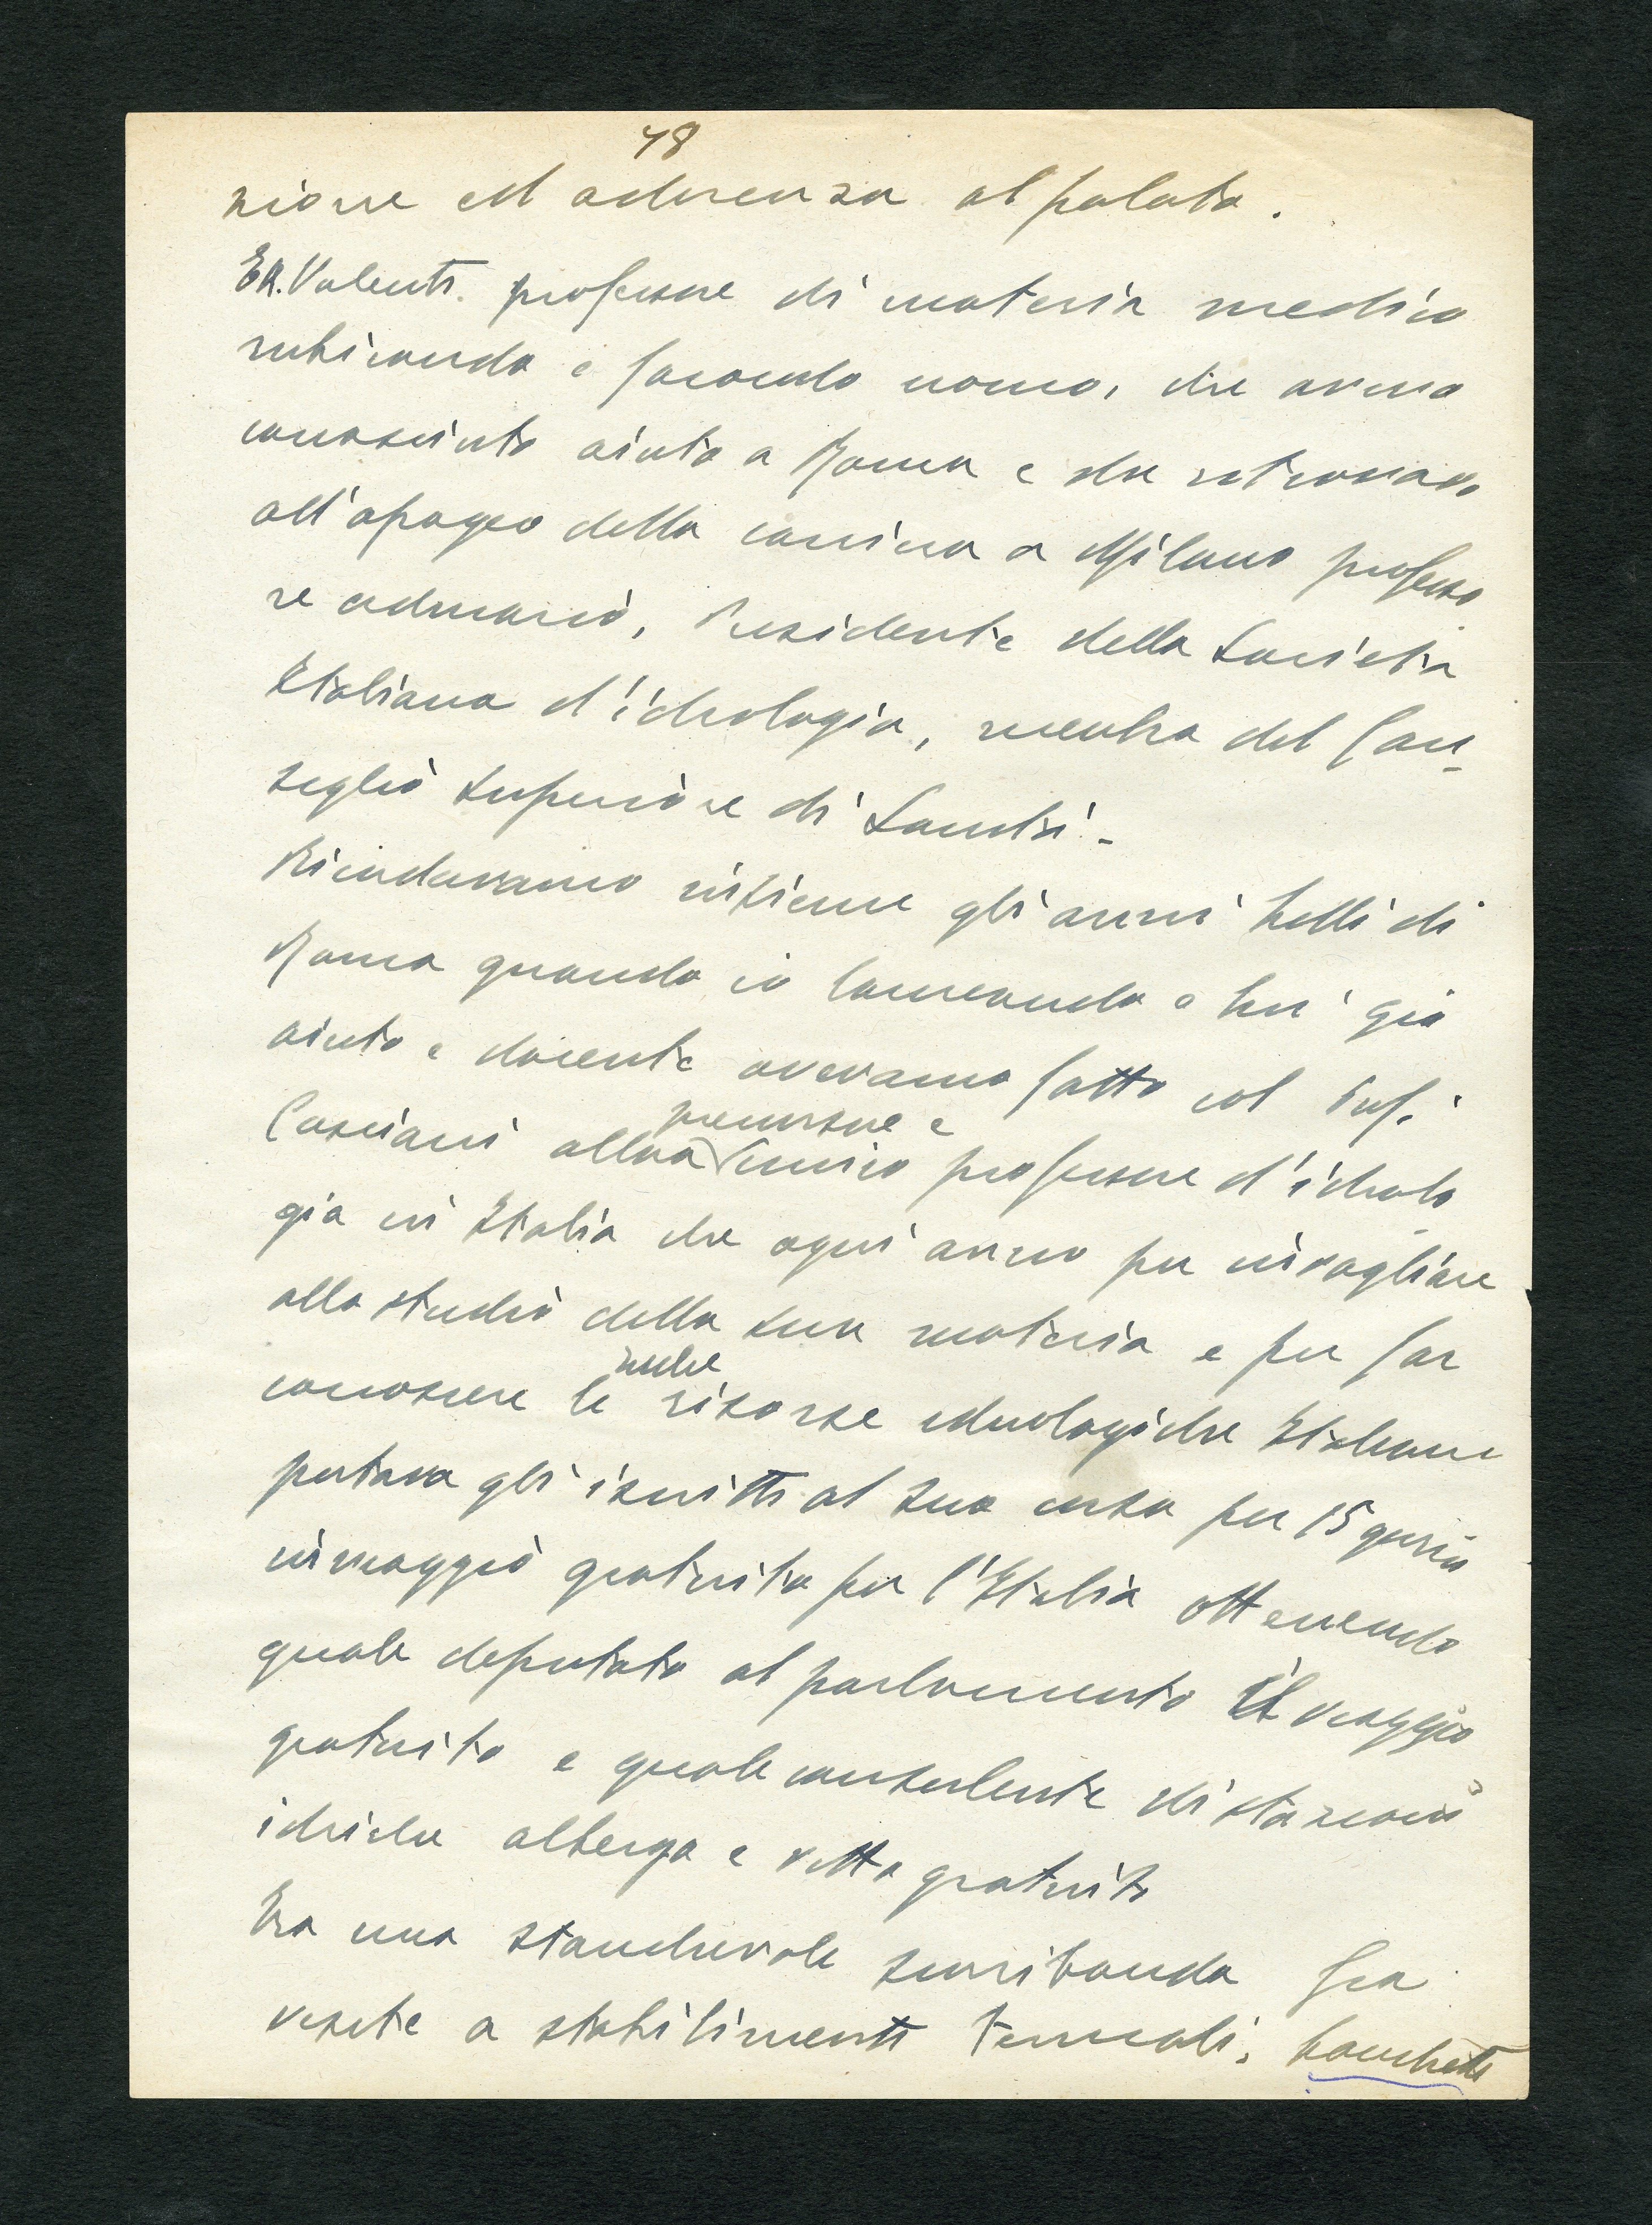 48
zione ed aderenza al palato.
Er. Valenti. professore di materia medica
rubicondo e facondo uomo, che avevo
conosciuto aiuto a Roma e che ritrovavo
all'apogeo della carriera a Milano professo
re ordinario, Presidente della Società
Italiana d'idrologia, membro del Con_
siglio superiore di Sanità -
Ricordavamo insieme gli anni belli di
Roma quando io laureando e lui già
aiuto e docente avevamo fatto col Prof.
precursore e
Casciani allora unico professore d'idrolo
gia in Italia che ogni anno per invogliare
allo studio della sua materia e per far
conoscere le ricche risorse idrologiche Italiane
portava gli iscritti al suo corso per 15 giorni
in viaggio gratuito per l'Italia ottenendo
quale deputato al parlamento il viaggio
gratuito e quale consulente di stazioni
idriche albergo e vitto gratuito
Era una stanchevole scorribanda fra
visite a stabilimenti termali, banchetti